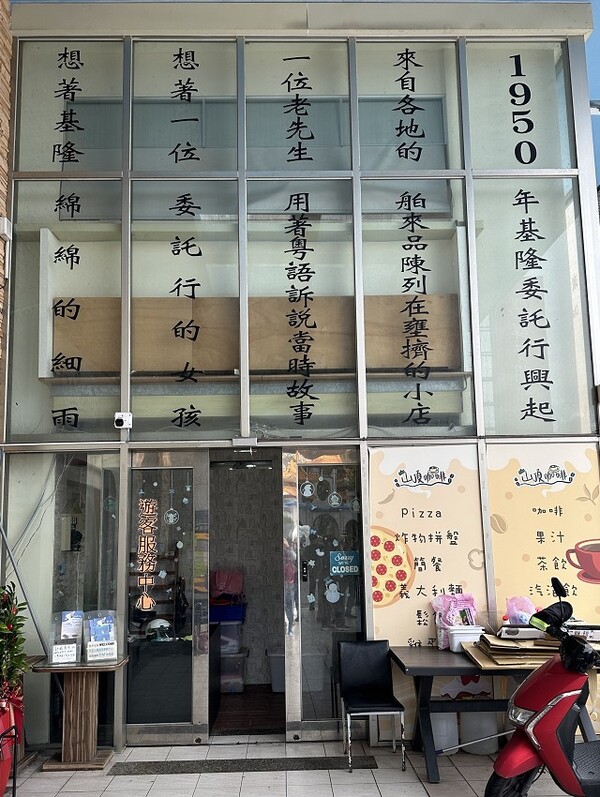 1950年基隆委託行興起
來自各地的舶來品陳列在壅擠的小店
一位老先生用著粵語訴說當時故事
想著一位委託行的女孩
想著基隆綿綿的細雨
遊客服務中心
Sorry
CLOSED
山浪咖啡
Pizza
炸物拼盤
簡餐
義大利麵
鬆
雞
山浪咖啡
咖啡
果汁
茶飲
汽泡飲